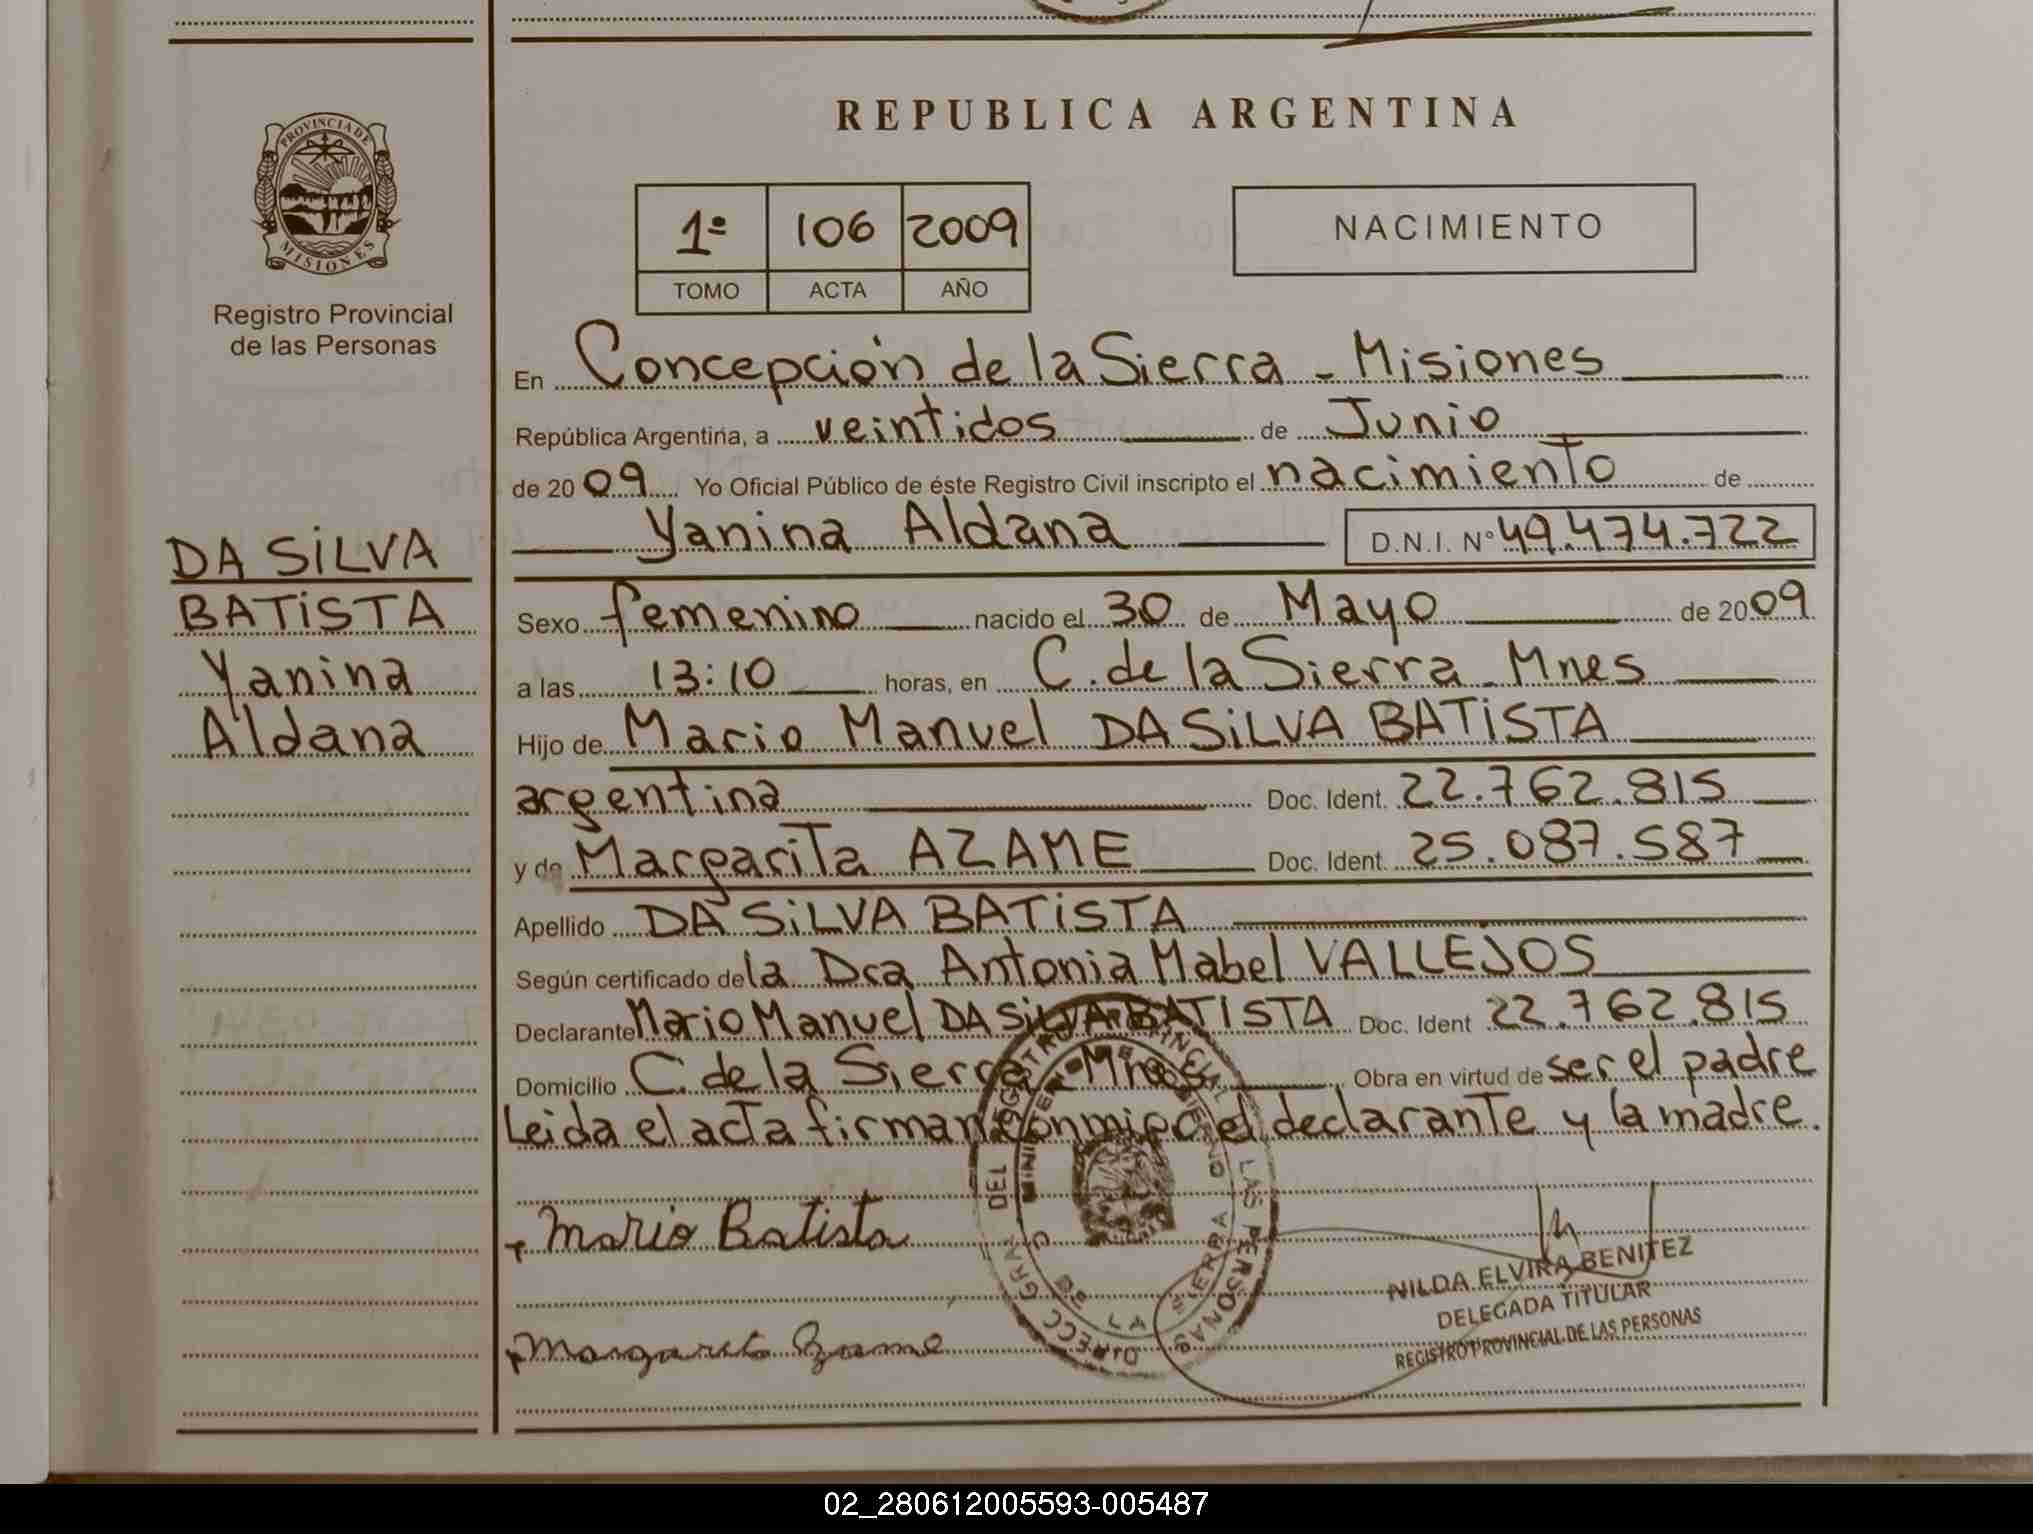 REPUBLICA ARGENTINA
PROVINCIA DE
MISIONES
Registro Provincial
de las Personas
1º 106 2009
TOMO ACTA AÑO
NACIMIENTO
En Concepción de la Sierra - Misiones
República Argentina, a veintidos de Junio
de 2009 Yo Oficial Público de éste Registro Civil inscripto el nacimiento de
Yanina Aldana D.N.I. Nº 49.474.722
DA SiLVA
BATiSTA
Yanina
Aldana
Sexo femenino nacido el 30 de Mayo de 2009
a las 13:10 horas, en C. de la Sierra - Mnes
Hijo de Mario Manuel DA SiLVA BATiSTA
argentina Doc. Ident. 22.762.815
y de Margarita AZAME Doc. Ident. 25.087.587
Apellido DA SiLVA BATiSTA
Según certificado de la Dra Antonia Mabel VALLEJOS
Declarante Mario Manuel DA SiLVA BATISTA Doc. Ident 22.762.815
Domicilio C. de la Sierra - Mnes Obra en virtud de ser el padre
Leida el acta firman conmigo el declarante y la madre.
Mario Batista
Margarita Azame
DEL REGISTRO PROVINCIAL DE LAS PERSONAS
MINISTERIO DE GOBIERNO
DE LA SIERRA
NILDA ELVIRA BENITEZ
DELEGADA TITULAR
REGISTRO PROVINCIAL DE LAS PERSONAS
02_280612005593-005487